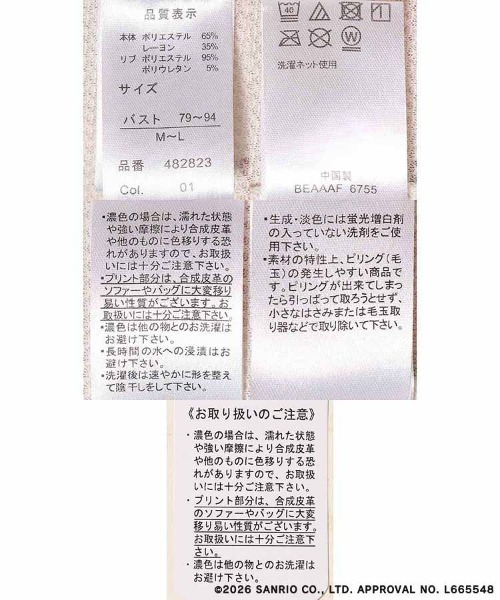 品質表示
本体 ポリエステル 65%
レーヨン 35%
リブ ポリエステル 95%
ポリウレタン 5%
サイズ
バスト 79〜94
M〜L
品番 482823
Col. 01
40
W
洗濯ネット使用
中国製
BEAAAF 6755
・濃色の場合は、濡れた状態
や強い摩擦により合成皮革
や他のものに色移りする恐
れがありますので、お取扱
いには十分ご注意下さい。
・プリント部分は、合成皮革の
ソファーやバッグに大変移り
易い性質がございます。お
取扱いには十分ご注意下さい。
・濃色は他の物とのお洗濯は
お避け下さい。
・長時間の水への浸漬はお
避け下さい。
・洗濯後は速やかに形を整え
て陰干しをして下さい。
・生成・淡色には蛍光増白剤
の入っていない洗剤をご使
用下さい。
・素材の特性上、ピリング(毛
玉)の発生しやすい商品で
す。ピリングが出来てしまっ
たら引っぱって取ろうとせず、
小さなはさみまたは毛玉取
り器などで取り除いて下さい。
《お取り扱いのご注意》
・濃色の場合は、濡れた状態
や強い摩擦により合成皮革
や他のものに色移りする恐
れがありますので、お取扱
いには十分ご注意下さい。
・プリント部分は、合成皮革
のソファーやバッグに大変
移り易い性質がございます。
お取扱いには十分ご注意下
さい。
・濃色は他の物とのお洗濯は
お避け下さい。
©2026 SANRIO CO., LTD. APPROVAL NO. L665548